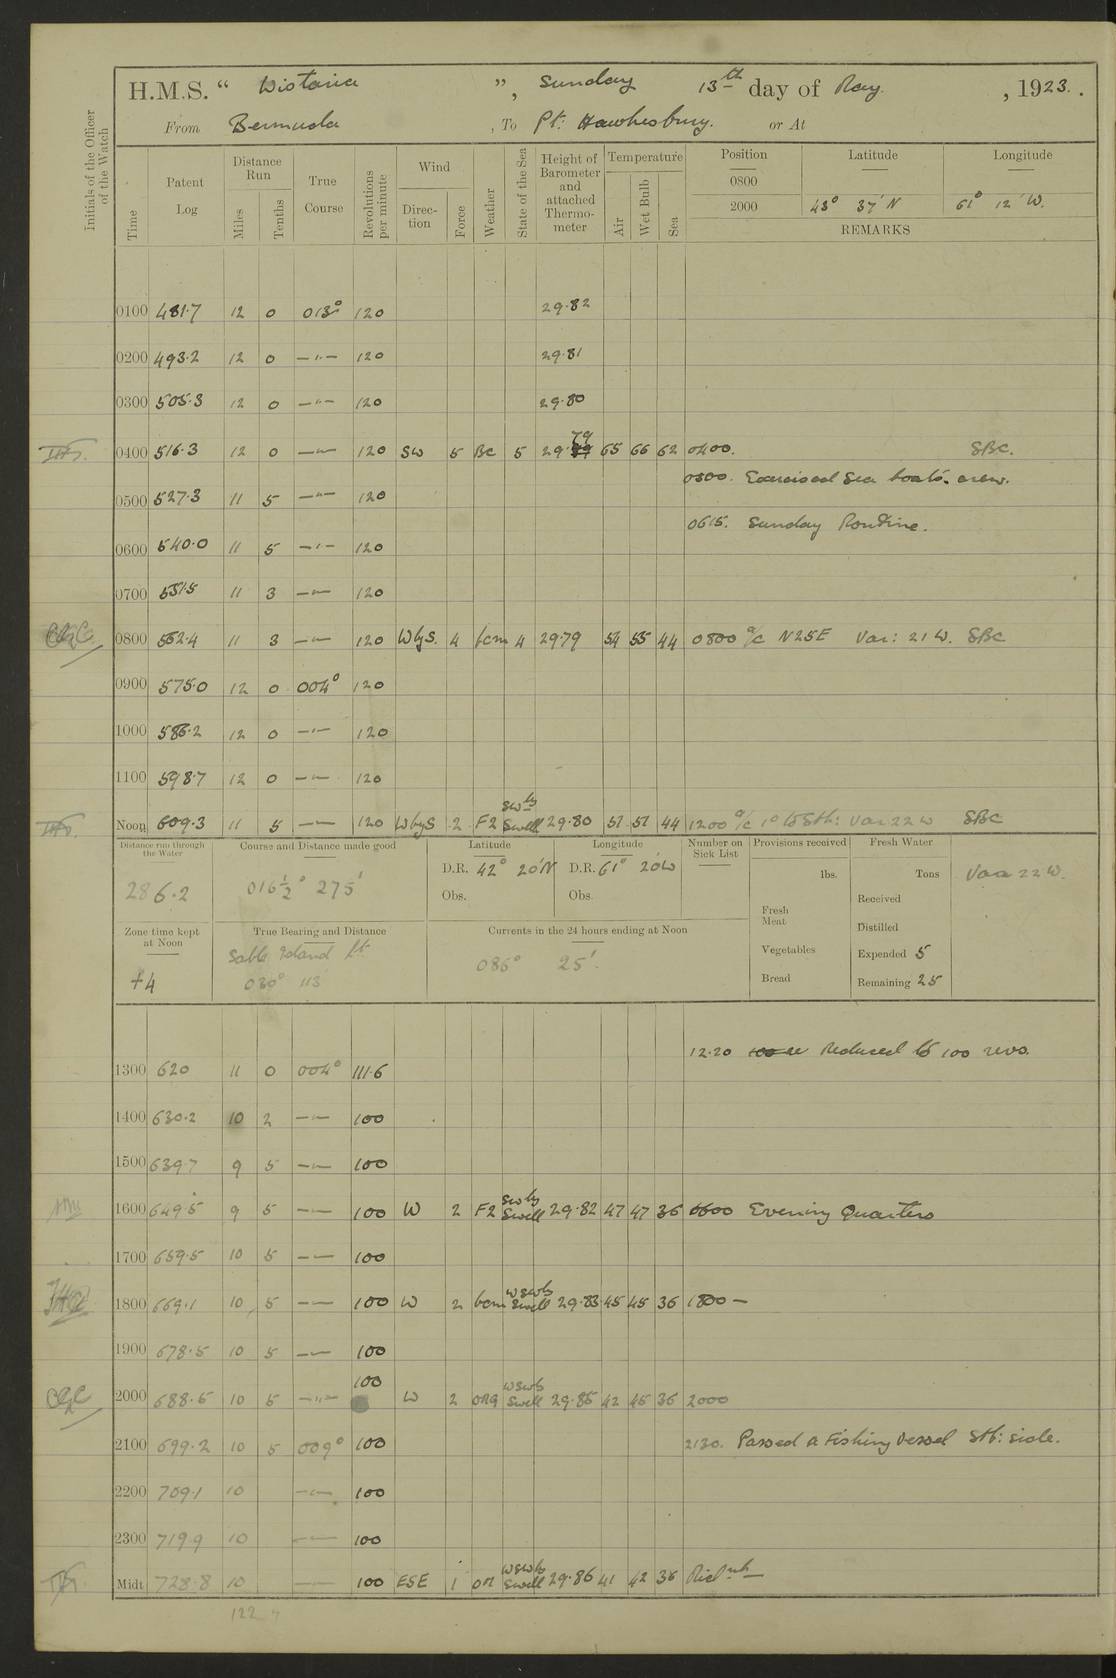 H.M.S. “ Wistaria ”, Sunday 13th day of May, 1923.
From Bermuda, To Pt: Hawkesbury. or At
Initials of the Officer of the Watch
Time Patent Log Distance Run Miles Tenths True Course Revolutions per minute Wind Direction Force Weather State of the Sea Height of Barometer and attached Thermometer Temperature Air Wet Bulb Sea Position Latitude Longitude
0800
2000 43° 37' N 61° 12' W.
REMARKS
0100 481.7 12 0 013° 120 29.82
0200 493.2 12 0 —"— 120 29.81
0300 505.3 12 0 —"— 120 29.80
0400 516.3 12 0 —"— 120 SW 5 BC 5 29.79 65 66 62 0400. SBC.
0500. Exercised Sea boat's crew.
0500 527.3 11 5 —"— 120
0615. Sunday Routine.
0600 540.0 11 5 —"— 120
0700 551.5 11 3 —"— 120
0800 562.4 11 3 —"— 120 WbyS. 4 bcm 4 29.79 54 55 44 0800 a/c N25E Var: 21 W. SBC
0900 575.0 12 0 004° 120
1000 586.2 12 0 —"— 120
1100 598.7 12 0 —"— 120
Noon 609.3 11 5 —"— 120 WbyS 2 F2 SWly Swell 29.80 51 51 44 1200 a/c 1° to Sth: Var 22 W SBC
Distance run through the Water Course and Distance made good Latitude Longitude Number on Sick List Provisions received Fresh Water
286.2 016½° 275' D.R. 42° 20'N D.R. 61° 20'W lbs. Tons Var 22 W.
Obs. Obs. Fresh Meat Received
Zone time kept at Noon True Bearing and Distance Currents in the 24 hours ending at Noon Distilled
Sable Island Lt. Vegetables Expended 5
+4 030° 113' 086° 25'. Bread Remaining 25
12.20 Reduced to 100 revs.
1300 620 11 0 004° 111.6
1400 630.2 10 2 —"— 100
1500 639.7 9 5 —"— 100
1600 649.5 9 5 —"— 100 W 2 F2 SWly Swell 29.82 47 47 36 1600 Evening Quarters
1700 659.5 10 5 —"— 100
1800 669.1 10 5 —"— 100 W 2 bcm WSWly Swell 29.83 45 45 36 1800 —
1900 678.5 10 5 —"— 100
2000 688.5 10 5 —"— 100 W 2 WSWly Swell 29.85 42 45 36 2000
2100 699.2 10 5 009° 100 2130. Passed a Fishing Vessel Stb: side.
2200 709.1 10 —"— 100
2300 719.9 10 —"— 100
Midt 728.8 10 —"— 100 ESE 1 om WSWly Swell 29.86 41 42 36
122